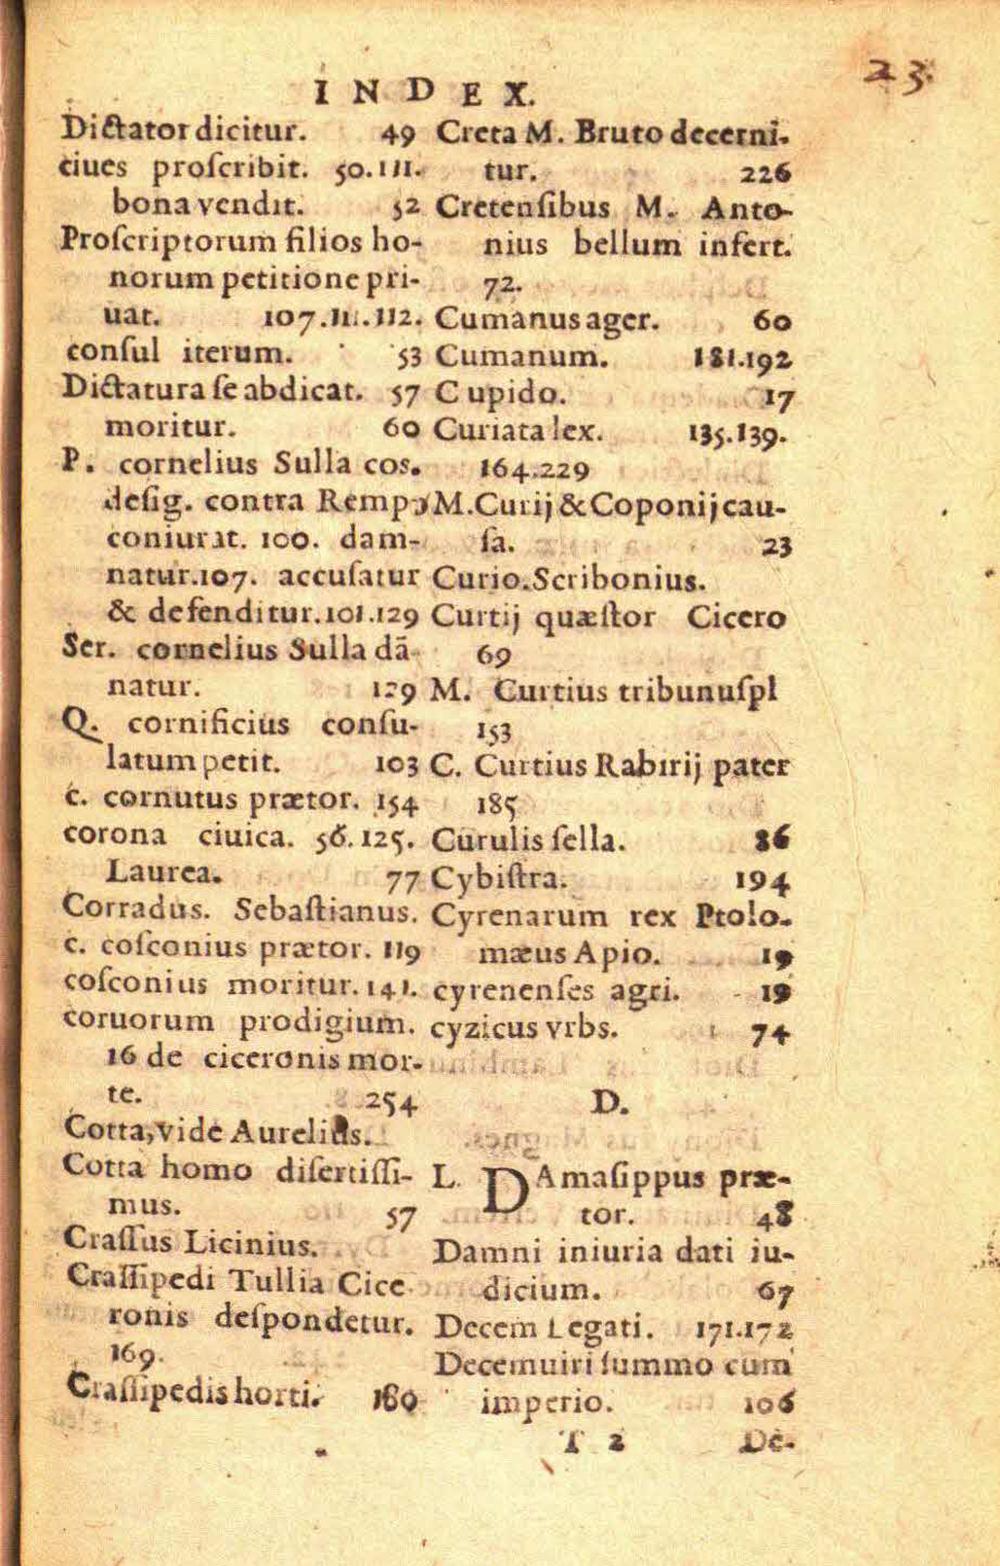 23.
INDEX.
Dictator dicitur. 49
ciues proſcribit. 50.111.
bona vendit. 52
Proſcriptorum filios ho-
norum petitione pri-
uat. 107.111.112.
conſul iterum. 53
Dictatura ſe abdicat. 57
moritur. 60
P. cornelius Sulla cos.
deſig. contra Remp.
coniurat. 100. dam-
natur.107. accuſatur
& defenditur.101.129
Ser. cornelius Sulla dā
natur. 129
Q. cornificius conſu-
latum petit. 103
c. cornutus prætor. 154
corona ciuica. 56.125.
Laurea. 77
Corradus. Sebaſtianus.
c. coſconius prætor. 119
coſconius moritur.141.
coruorum prodigium.
16 de ciceronis mor-
te. 254
Cotta,vide Aurelius.
Cotta homo diſertiſſi-
mus. 57
Craſſus Licinius.
Craſſipedi Tullia Cice
ronis deſpondetur.
169.
Craſſipedis horti. 180
Creta M. Bruto decerni-
tur. 226
Cretenſibus M. Anto-
nius bellum infert.
72.
Cumanus ager. 60
Cumanum. 181.192
Cupido. 17
Curiata lex. 135.139.
164.229
M.Curij & Coponij cau-
ſa. 23
Curio.Scribonius.
Curtij quæſtor Cicero
69
M. Curtius tribunuſpl
153
C. Curtius Rabirij pater
185
Curulis ſella. 86
Cybiſtra. 194
Cyrenarum rex Ptolo-
mæus Apio. 19
cyrenenſes agri. 19
cyzicus vrbs. 74
D.
L. DAmaſippus præ-
tor. 48
Damni iniuria dati iu-
dicium. 67
Decem Legati. 171.172
Decemuiri ſummo cum
imperio. 106
T 2 De-